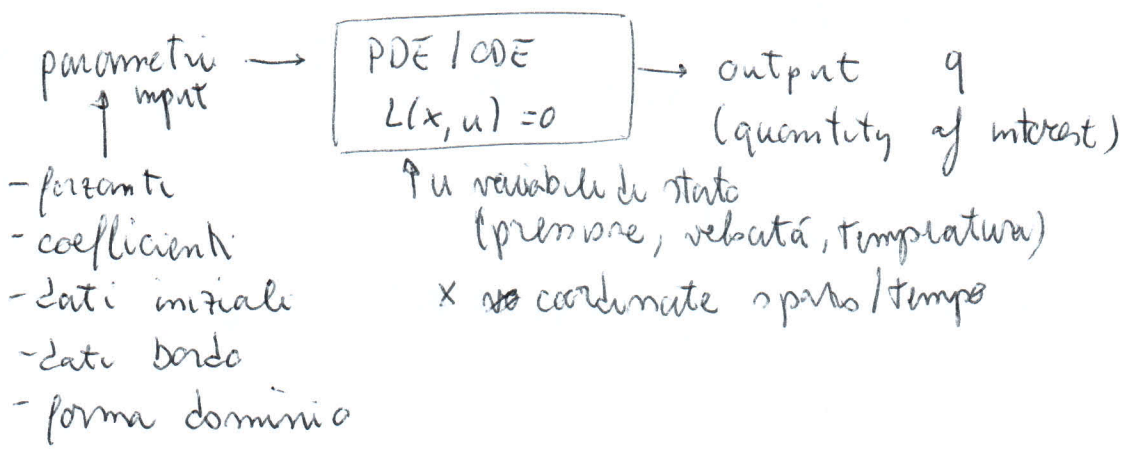 parametri → PDE / ODE → output q
input
L(x, u) = 0
(quantity of interest)
- forzanti
- coefficienti
- dati iniziali
- dati bordo
- forma dominio
↑ u variabile di stato
(pressione, velocitá, tempratura)
x coordinate spazio/tempo